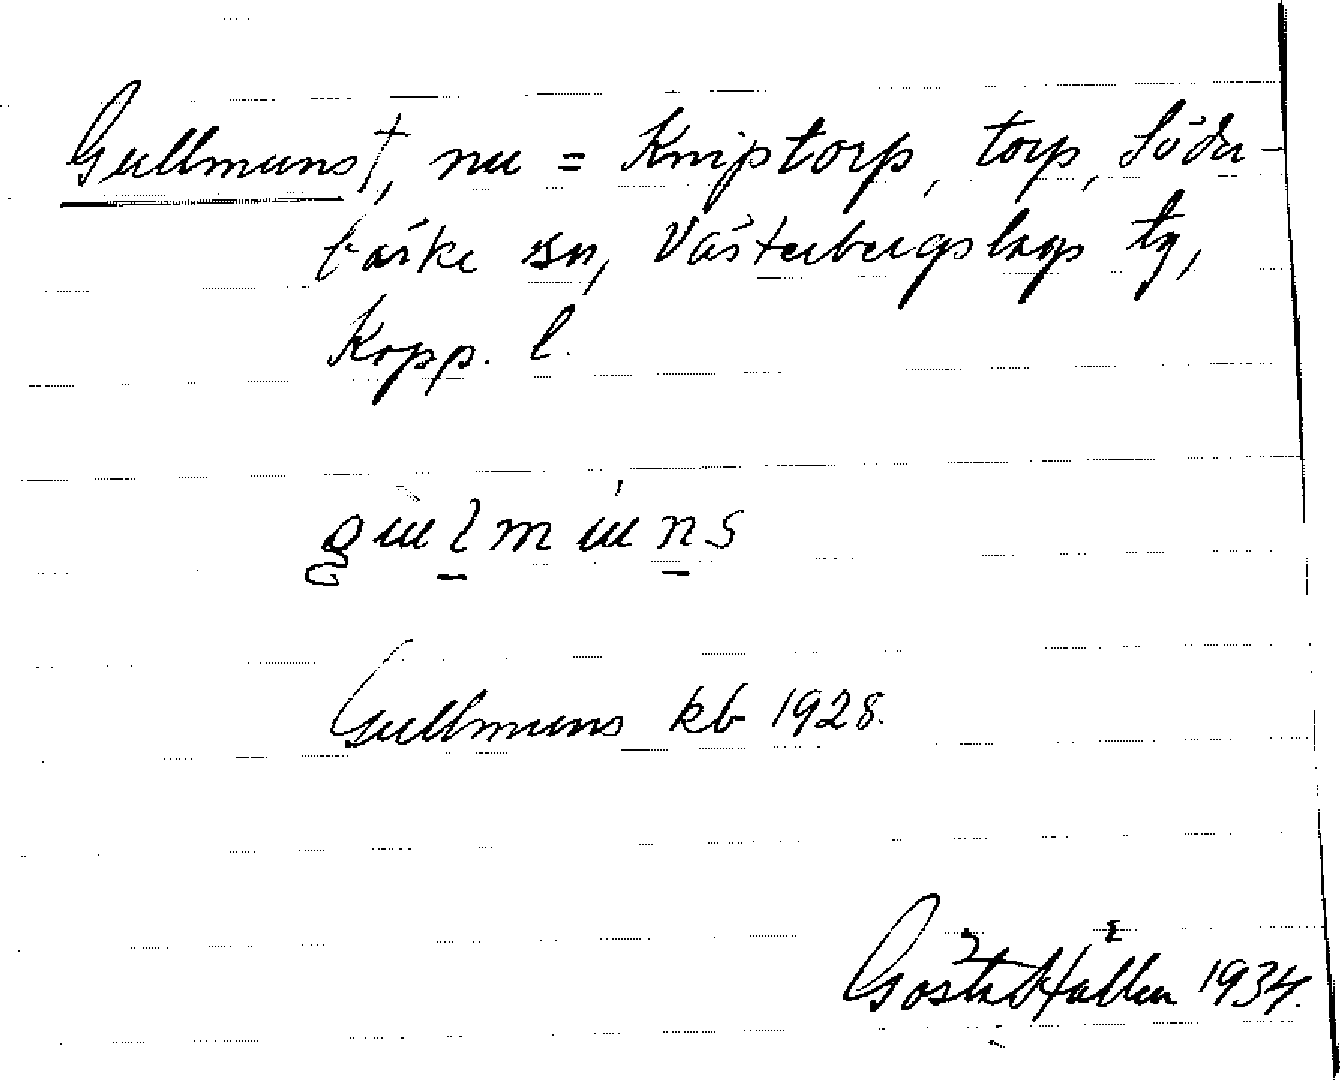 Gullmuns†, nu = Kniptorp, torp, Söder-
bärke sn, Västerbergslags tg,
Kopp. l.
Gullmuns kb 1928.
Gösta Hallén 1934.